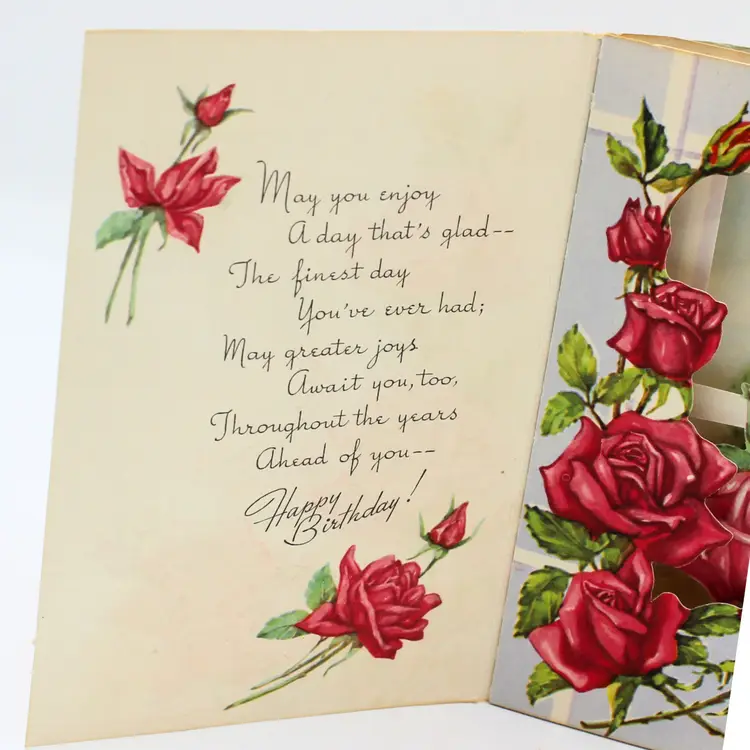 May you enjoy
A day that's glad--
The finest day
You've ever had;
May greater joys
Await you, too,
Throughout the years
Ahead of you--
Happy
Birthday!